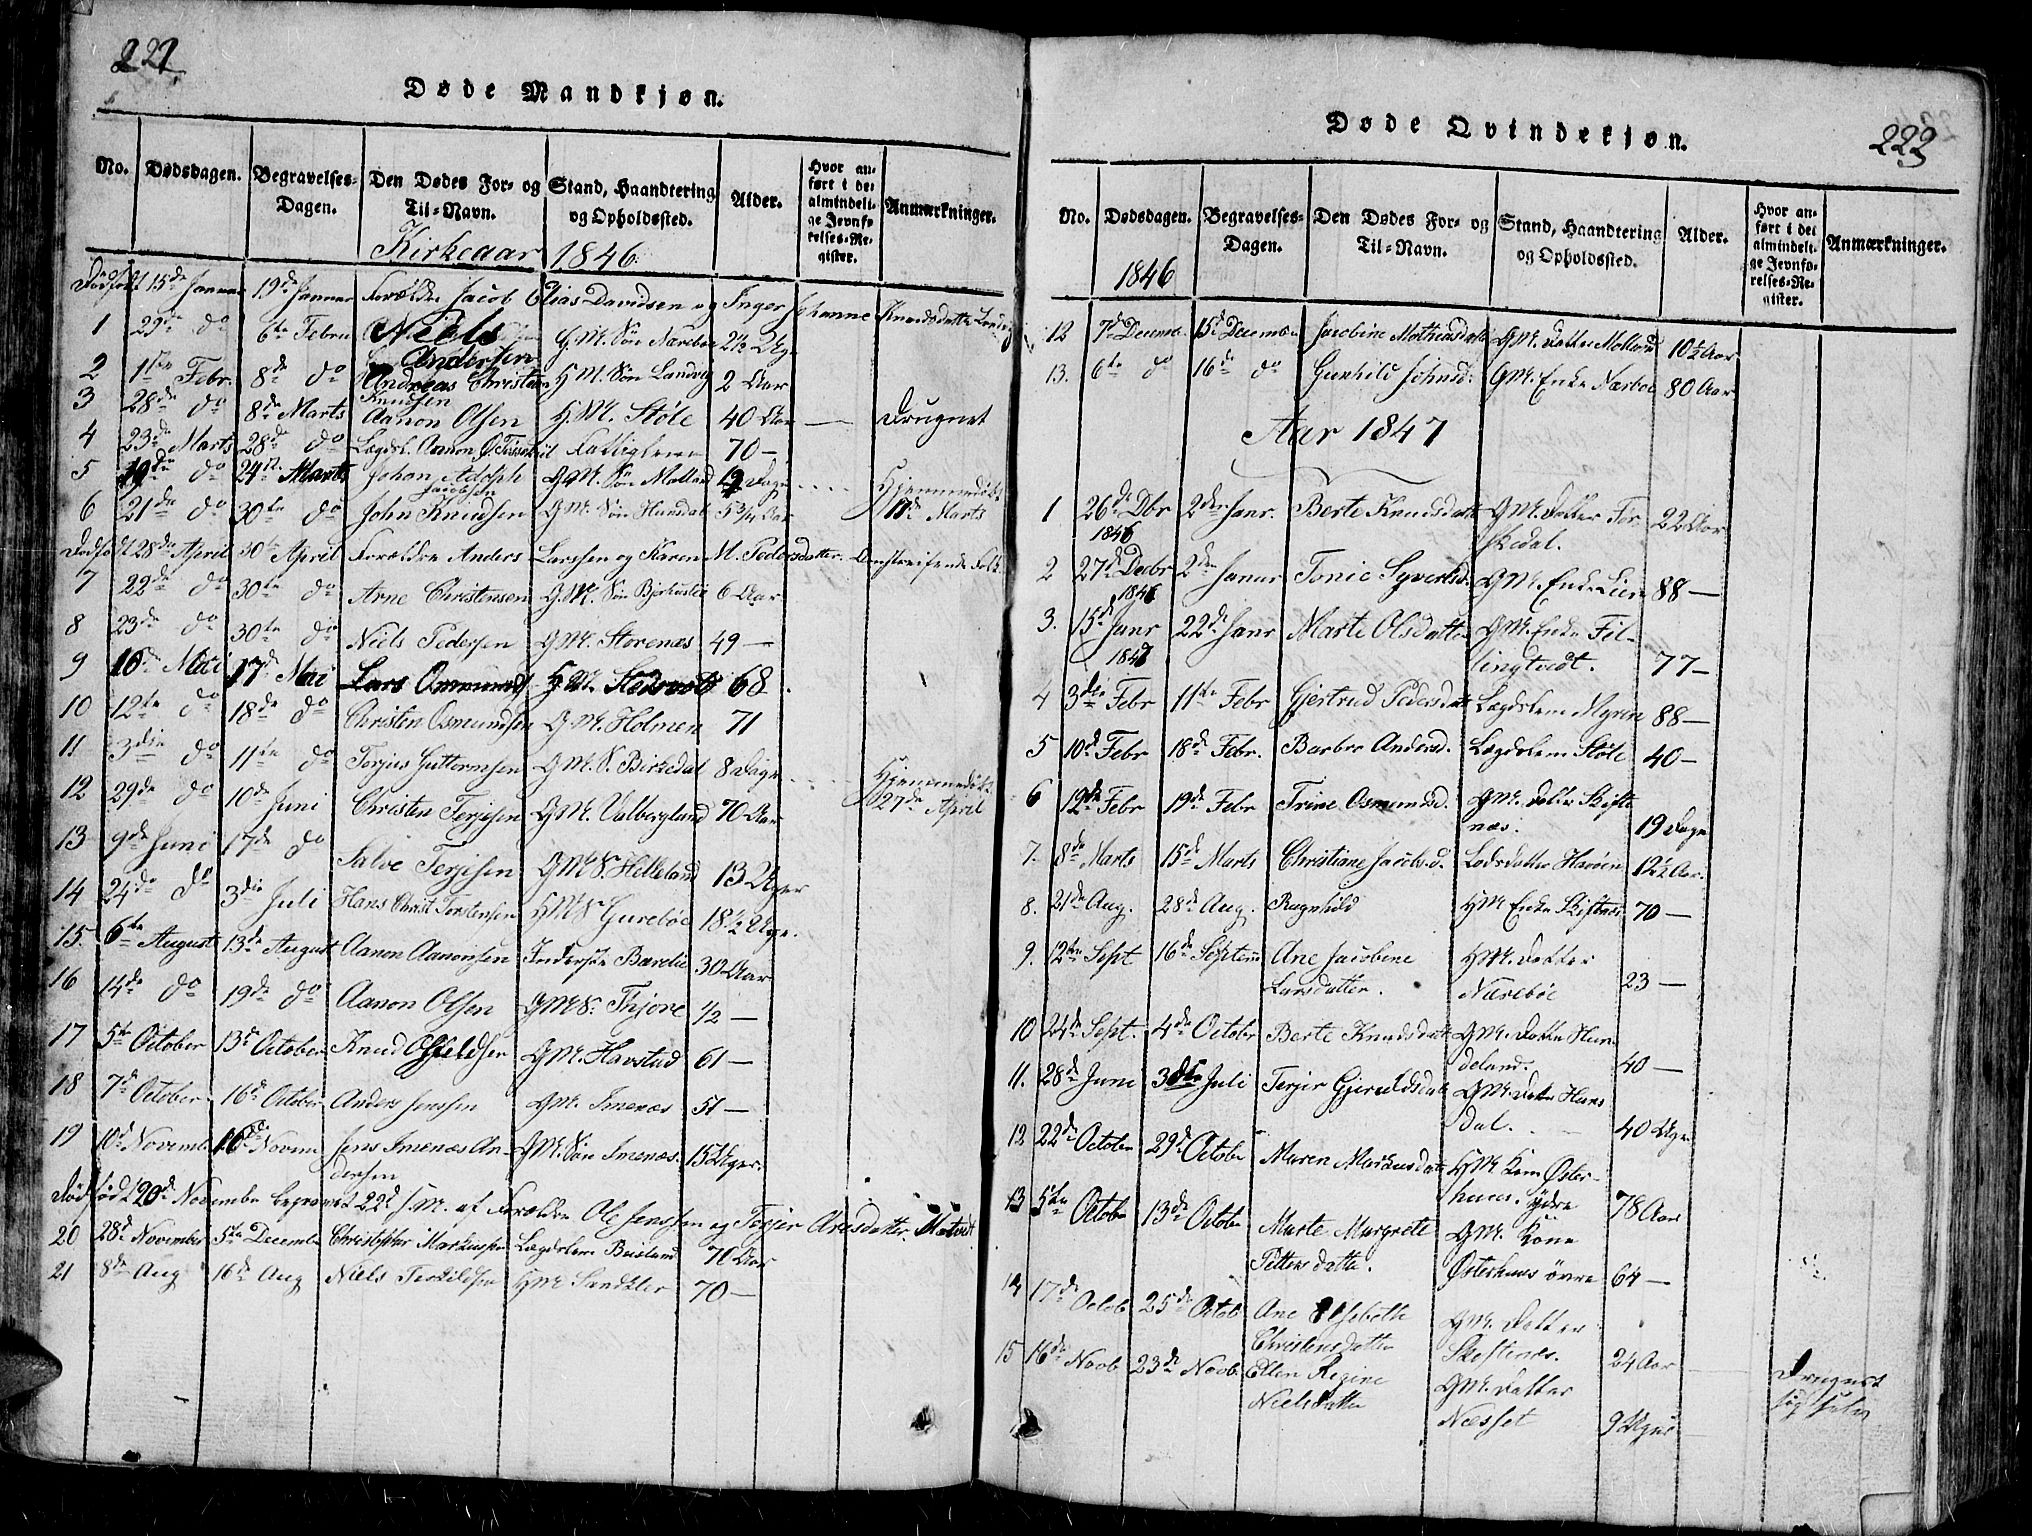 222.
Døde Mandkjøn.
No. Dødsdagen. Begravelses-Dagen. Den Dødes For- og Til-Navn. Stand, Haandtering og Opholdssted. Alder. Hvor anført i det almindelige Jevnførelses-Register. Anmærkninger.
Kirkeaar 1846.
Dødfødt 15de Januar 19de Januar Forældre Jacob Elias Davidsen og Inger Johanne Knudsdatter
1 29de do 6te Febru Niels Andersen G.M. Søn Nærebøe 2½ Uge
2 1ste Febr. 8de do Andreas Christian Knudsen H.M. Søn Landvig 2 Aar
3 28de do 8de Marts Aanon Olsen H.M. Støle 40 Aar — Druknet
4 23de Marts 28de do Lægdsl. Aanon 70 —
5 19de do 24de Marts Johan Adolph Jacobsen G.M. Søn Molland 12 Dage Hjemmedøbt
6 21de do 30te do John Knudsen G.M. Søn Hunsdal 5¾ Aar 17de Marts
Dødfødt 28de April 30te April Forældre Anders Larssen og Karen M. Pedersdatter. Omstreifende Folk.
7 22de do 30te do Arne Christensen G.M. Søn 6 Aar
8 23de do 30te do Niels Pedersen G.M. Storenæs 49 —
9 10de Mai 17de Mai Lars Ommunds. H.M. 68
10 12te do 18de do Christen Osmundsen G.M. Holmen 71
11 3die do 11te do Terjus Guttormsen G.M.S. Birkedal 8 Dage Hjemmedøbt
12 29de do 10de Juni Christen Terjesen G.M. Valberglund 70 Aar 27de April
13 9de Juni 17de do Salve Terjesen G.M.S. Helleland 13 Uger
14 24de do 3die Juli Hans Christ Torstensen H.M.S. Gurebøe 18½ Uge.
15. 6te August 13de August Aanon Aanonsen Inderste 30 Aar
16 14de do 19de do Aanon Olsen G.M.S. Thjore ½ —
17 5te October 13de October Knud G.M. Havstad 61 —
18 7de October 16de October Anders Jenssen G.M. Imenæs 51 —
19 10de Novemb 16de Novem Jens Imenæs Andersen G.M. Søn Imenæs. 15 Uger.
Dødfødt 20de Novembe begravet 22de s.M. af Forældre Ole Jenssen og Terjer Aresdatter.
20 28de November 5te Decembe Christopher Markussen Lægdslem Beisland 70 Aar
21 8de Aug 16de Aug Niels Terkildsen H.M. Sandkler 70 —
223
Døde Qvindekjøn.
No. Dødsdagen. Begravelses-Dagen. Den Dødes For- og Til-Navn. Stand, Haandtering og Opholdssted. Alder. Hvor anført i det almindelige Jevnførelses-Register. Anmærkninger.
1846
12 7de Decemb 15de Decembe Jacobine Mathiasdatt G.M. Datter Molland 10½ Aar
13. 6te do 16de do Gunhild Johnsd. G.M. Enke Nærboe 80 Aar
Aar 1847
1 26de Dbr 1846 2den Janr. Berte Knudsdatt G.M. Datter 22 Aar
2 27de Decbr 1846 2den Januar Tonie Syverts. G.M. Enke Lien 88 —
3. 15de Janr 1847 22de Janr Marte Olsdatter G.M. Enke Fillingtvedt. 77 —
4 3die Febr 11te Febr Gjertrud Pedersdatt Lægdslem Myren 88 —
5 10de Febr 18de Febr. Barbro Andersd. Lægdslem Støle 40 —
6 12de Febr 19de Febr Trine Osmundsd. G.M. Datter Skiftenæs. 19 Dage
7. 8de Marts 15de Marts Christiane Jacobsd. Lodsdatter Havøen 12½ Aar.
8. 21de Aug. 28de Aug. Ragnhild H.M. Enke Skiftenæs 70 —
9. 12te Sept 16de Septem Ane Jacobine Larsdatter. H.M. Datter Nærebøe 23 —
10 24de Sept. 4de October Berte Knudsdatt G.M. Datter Hundeland. 40 —
11. 28de Juni 3die Juli Terjer Gjeruldsdat G.M. Datter Hunsdal. 40 Uger
12 22de Octobe 29de Octobe Maren Markusdatt H.M. Kone Østerhuus. Ydre 78 Aar
13 5te Octobe 13de Octobe Marte Margrete Pettersdatter. G.M. Kone Østerhuus øvre 64 —
14 17de Octob 25de Octob Ane Elsebeth Christensdatter G.M. Datter Skiftenæs. 24 Aar
15 16de Novb 23de Novb. Ellen Regine Nielsdatter G.M. Datter Næsset 9 Uger